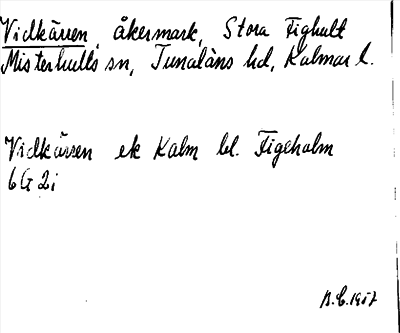 Vidkärren, åkermark, Stora Fighult
Misterhults sn, Tunaläns hd, Kalmar l.
Vidkärren ek Kalm bl. Figeholm
6G2i
B.E.1957